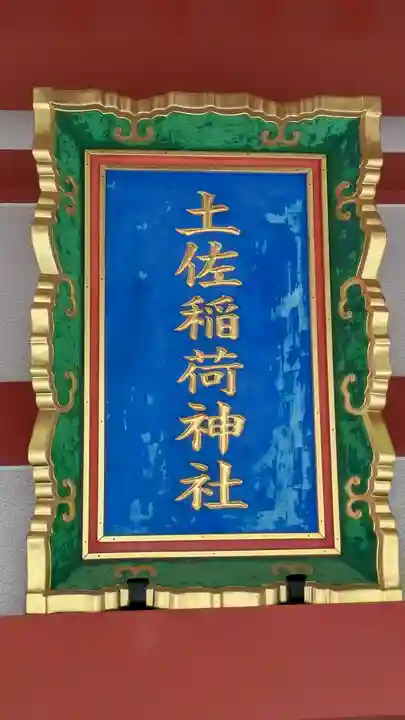 土佐稲荷神社